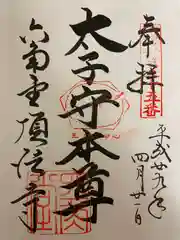 奉拝
平成廿九年
四月廿一日
太子守本尊
六角堂頂法寺